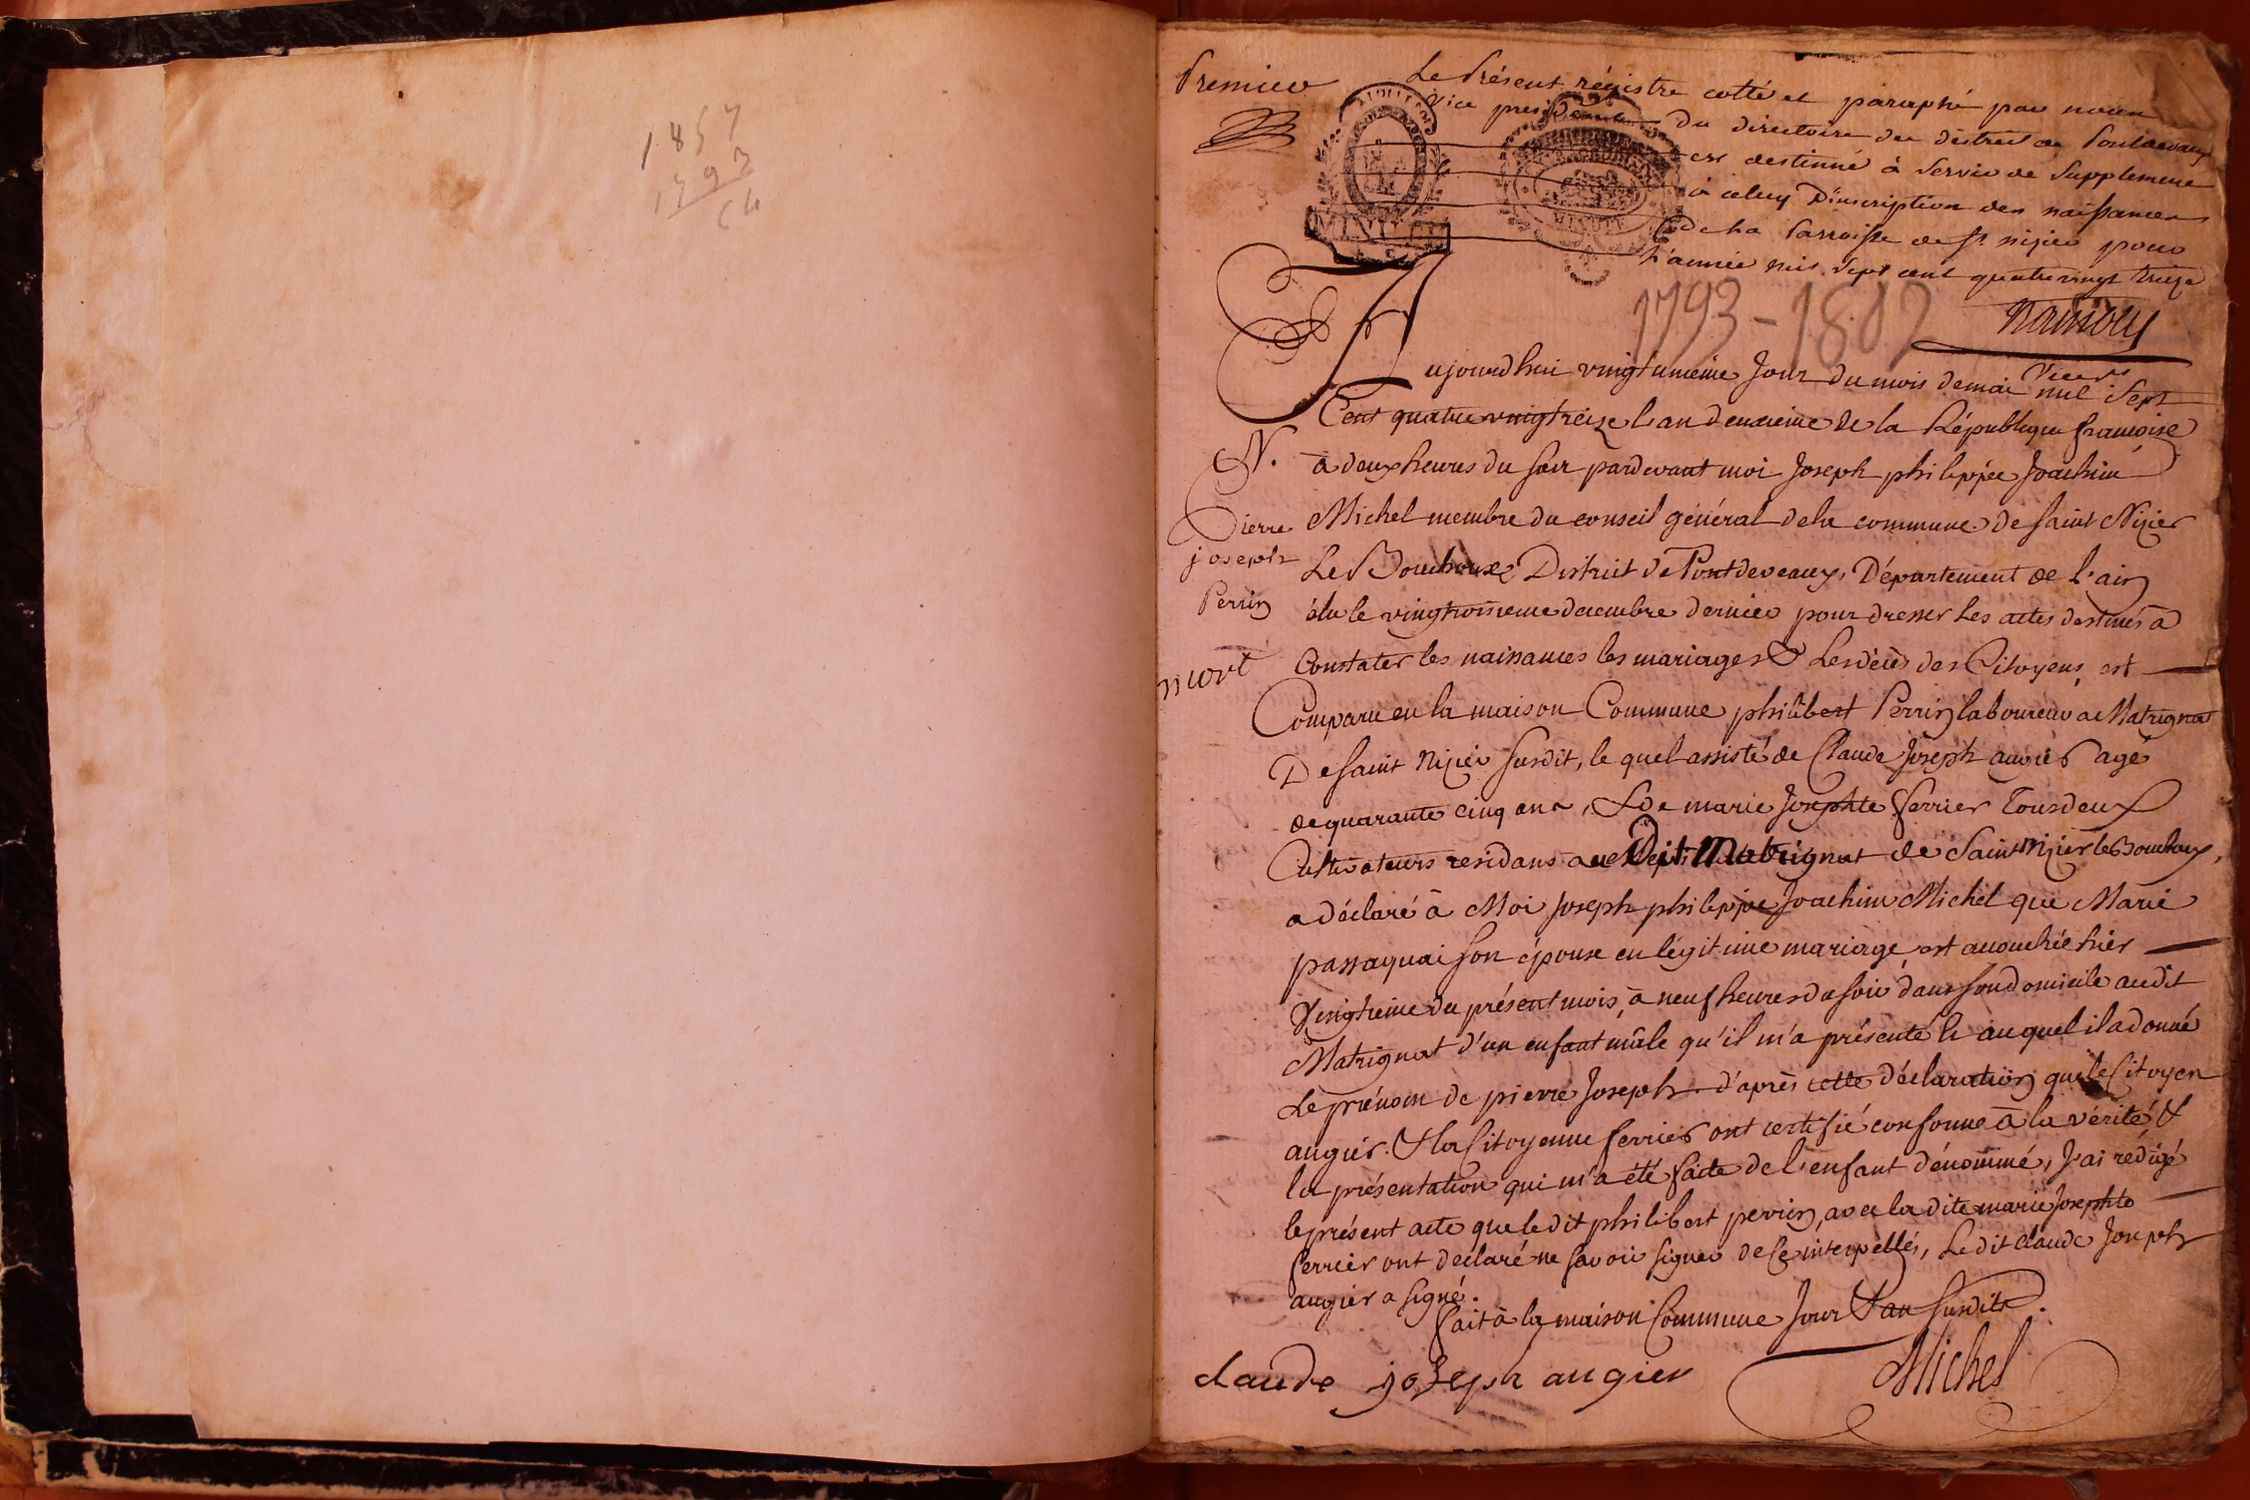 1857
1793
64
Premier
Le Présent régistre cotté et paraphé par nous
Vice president du directoire du district de Pontdevaux
est destinné à Servir de Supplement
à celuy D'inscription des naissances
de la Parroisse de St nizier pour
L'année mil Sept cent quatrevingt treize
MINUTE
MINUTE
1793-1802
Vice pt
Aujourdhui vingtunieme Jour du mois demai mil Sept
Cent quatrevingtreize l'an deuxieme de la République francoise
à deux heures du soir pardevant moi Joseph philippe Joachim
Michel membre du conseil général dela commune de saint Nizier
Le Bouchoux District de Pontdeveaux, Département de l'ain
élu le vingtroisieme decembre dernier pour dresser les actes destinés à
Constater les naissances les mariages & les décès des Citoyens, est
Comparu en la maison Commune philibert Perrin laboureur a Matrignat
De saint Nizier susdit, le quel assisté de Claude Joseph augier agé
de quarante cinq ans, & de marie Josephte ferrier Tousdeux
Cultivateurs residans au Dit Matrignat de Saint Nizier le Bouchoux,
a déclaré à Moi Joseph philippe Joachim Michel que Marie
passaquai son épouse en légitime mariage, est accouchée hier
Vingtieme du présent mois, à neuf heures du soir dans son domicile audit
Matrignat d'un enfant mâle qu'il m'a présenté & auquel il a donné
Le prénom de pierre Joseph. d'après cette déclaration que le Citoyen
augier. & la Citoyenne ferrier ont certifié conforme à la vérité, &
la présentation qui m'a été faite de l'enfant dénommé, J'ai rédigé
le présent acte que le dit philibert perrin, avec la dite marie Josephte
ferrier ont declaré ne savoir signer de ce interpellés, Le dit Claude Joseph
augier a signé.
fait à la maison Commune Jour & an susdits.
N.
Pierre
joseph
Perrin
mort
claude joseph augier
Michel